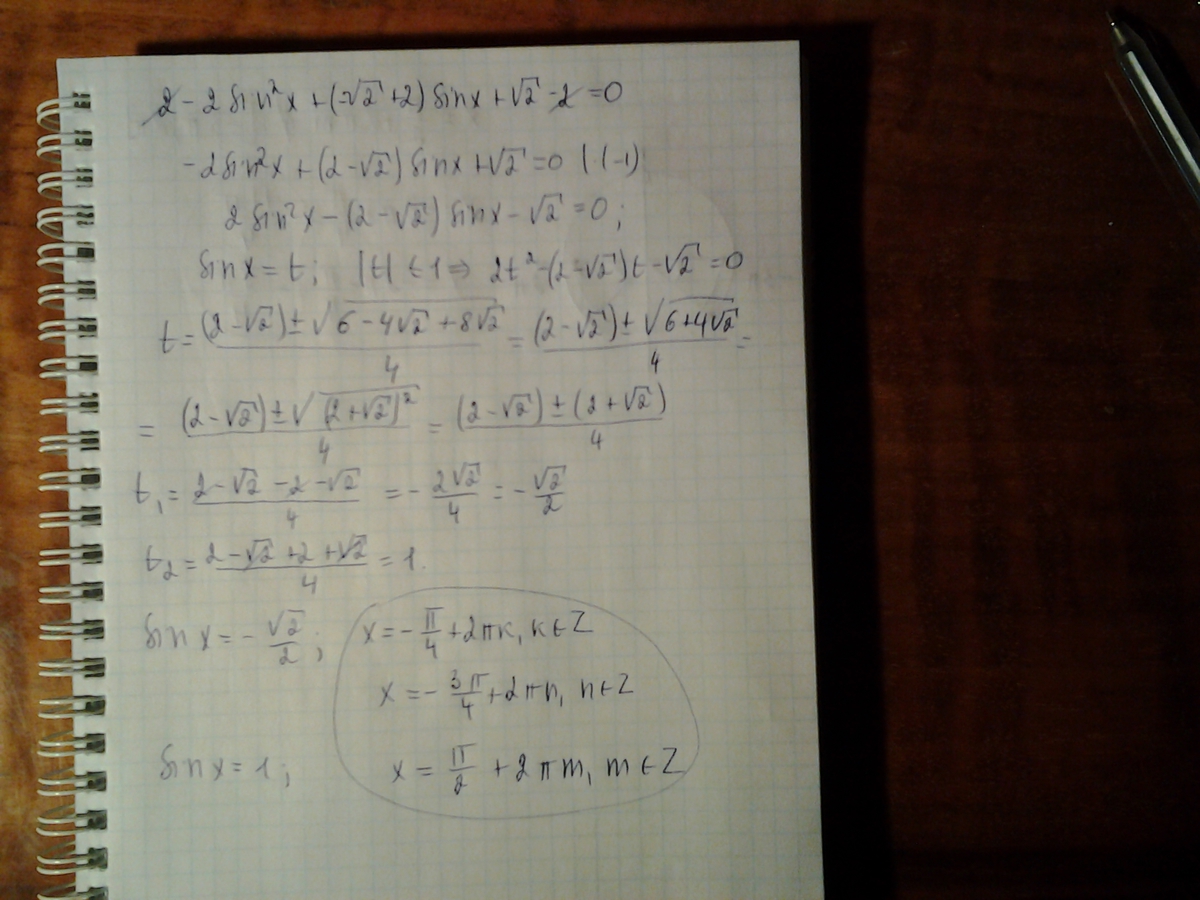 2 - 2 sin²x + (-√2 + 2) sinx + √2 - 2 = 0
-2 sin²x + (2 - √2) sinx + √2 = 0 | · (-1)
2 sin²x - (2 - √2) sinx - √2 = 0;
sinx = t; |t| ≤ 1 ⇒ 2t² - (2 - √2)t - √2 = 0
t = ((2 - √2) ± √(6 - 4√2 + 8√2))/4 = ((2 - √2) ± √(6 + 4√2))/4 =
= ((2 - √2) ± √((2 + √2)²))/4 = ((2 - √2) ± (2 + √2))/4
t₁ = (2 - √2 - 2 - √2)/4 = - 2√2/4 = - √2/2
t₂ = (2 - √2 + 2 + √2)/4 = 1.
sin x = - √2/2; x = - π/4 + 2πк, к ∈ Z
x = - 3π/4 + 2πn, n ∈ Z
sin x = 1; x = π/2 + 2πm, m ∈ Z